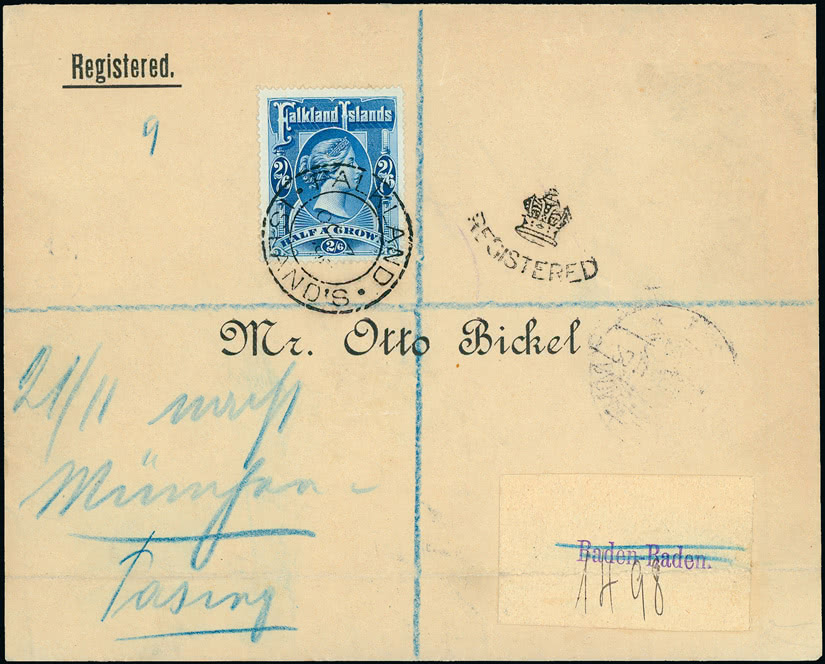 Registered.
9
Falkland Islands
2/6 2/6
HALF A CROWN
2/6
FALKLAND · ISLAND'S ·
REGISTERED
Mr. Otto Bickel
21/11 nach
München-
Pasing
Baden-Baden.
1498